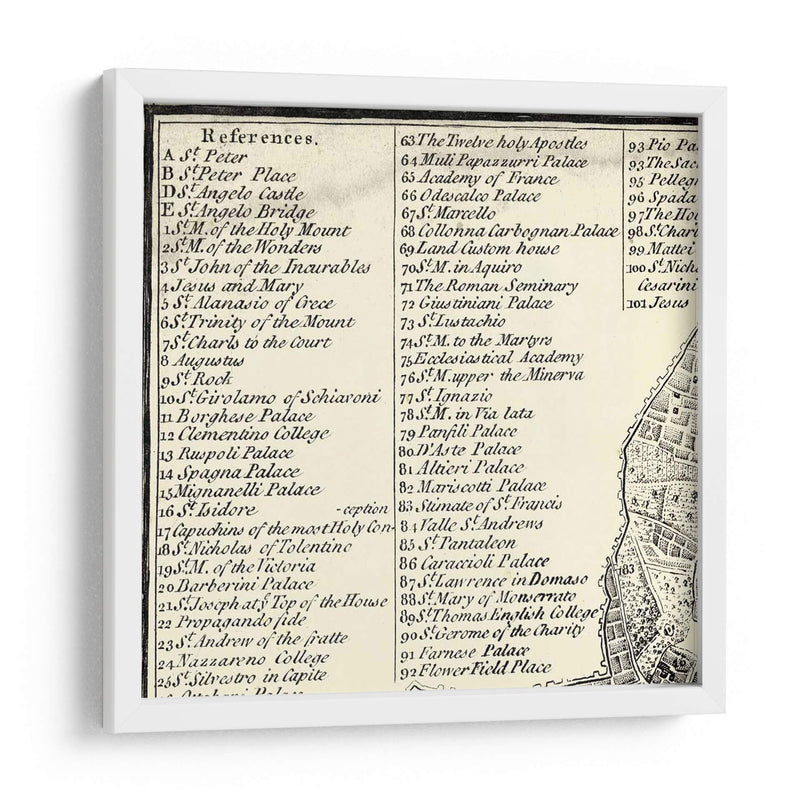 References.
A St. Peter
B St. Peter Place
D St. Angelo Castle
E St. Angelo Bridge
1 St. M. of the Holy Mount
2 St. M. of the Wonders
3 St. John of the Incurables
4 Jesus and Mary
5 St. Alanasio of Grece
6 St. Trinity of the Mount
7 St. Charls to the Court
8 Augustus
9 St. Rock
10 St. Girolamo of Schiavoni
11 Borghese Palace
12 Clementino College
13 Ruspoli Palace
14 Spagna Palace
15 Mignanelli Palace
16 St. Isidore -ception
17 Capuchins of the most Holy Con-
18 St. Nicholas of Tolentino
19 St. M. of the Victoria
20 Barberini Palace
21 St. Joseph at ye Top of the House
22 Propagando fide
23 St. Andrew of the fratte
24 Nazzareno College
25 St. Silvestro in Capite
63 The Twelve holy Apostles
64 Muli Papazzurri Palace
65 Academy of France
66 Odescalco Palace
67 St. Marcello
68 Collonna Carbognan Palace
69 Land Custom house
70 St. M. in Aquiro
71 The Roman Seminary
72 Giustiniani Palace
73 St. Lustachio
74 St. M. to the Martyrs
75 Ecclesiastical Academy
76 St. M. upper the Minerva
77 St. Ignazio
78 St. M. in Via lata
79 Panfili Palace
80 D'Aste Palace
81 Altieri Palace
82 Mariscotti Palace
83 Stimate of St. Francis
84 Valle St. Andrews
85 St. Pantaleon
86 Caraccioli Palace
87 St. Lawrence in Domaso
88 St. Mary of Monserrato
89 St. Thomas English College
90 St. Gerome of the Charity
91 Farnese Palace
92 Flower Field Place
93 Pio Pa
93 The Sac
95 Pellegr
96 Spada
97 The Hol
98 St. Charl
99 Mattei
100 St. Nich
Cesarini
101 Jesus
183